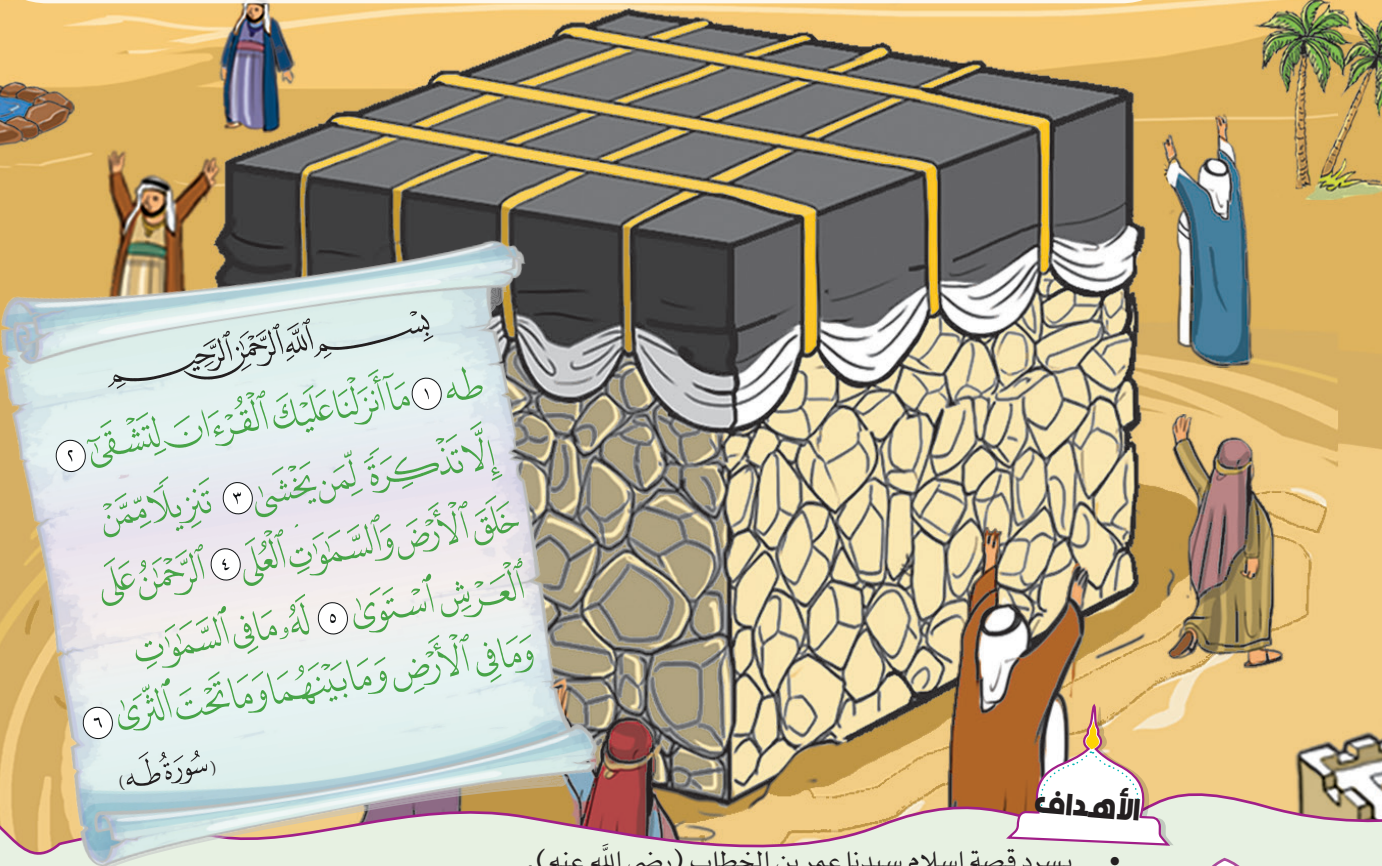 بِسْمِ ٱللَّهِ ٱلرَّحْمَٰنِ ٱلرَّحِيمِ
طه ١ مَآ أَنزَلْنَا عَلَيْكَ ٱلْقُرْءَانَ لِتَشْقَىٰٓ ٢
إِلَّا تَذْكِرَةً لِّمَن يَخْشَىٰ ٣ تَنزِيلًا مِّمَّنْ
خَلَقَ ٱلْأَرْضَ وَٱلسَّمَٰوَٰتِ ٱلْعُلَى ٤ ٱلرَّحْمَٰنُ عَلَى
ٱلْعَرْشِ ٱسْتَوَىٰ ٥ لَهُۥ مَا فِى ٱلسَّمَٰوَٰتِ
وَمَا فِى ٱلْأَرْضِ وَمَا بَيْنَهُمَا وَمَا تَحْتَ ٱلثَّرَىٰ ٦
(سُورَةُ طَه)
الأهداف
• يسرد قصة إسلام سيدنا عمر بن الخطاب (رضي الله عنه).